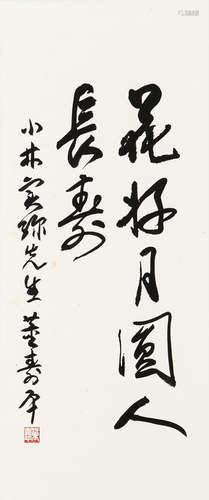 花好月圓人
長壽
小林實弥先生 董壽平